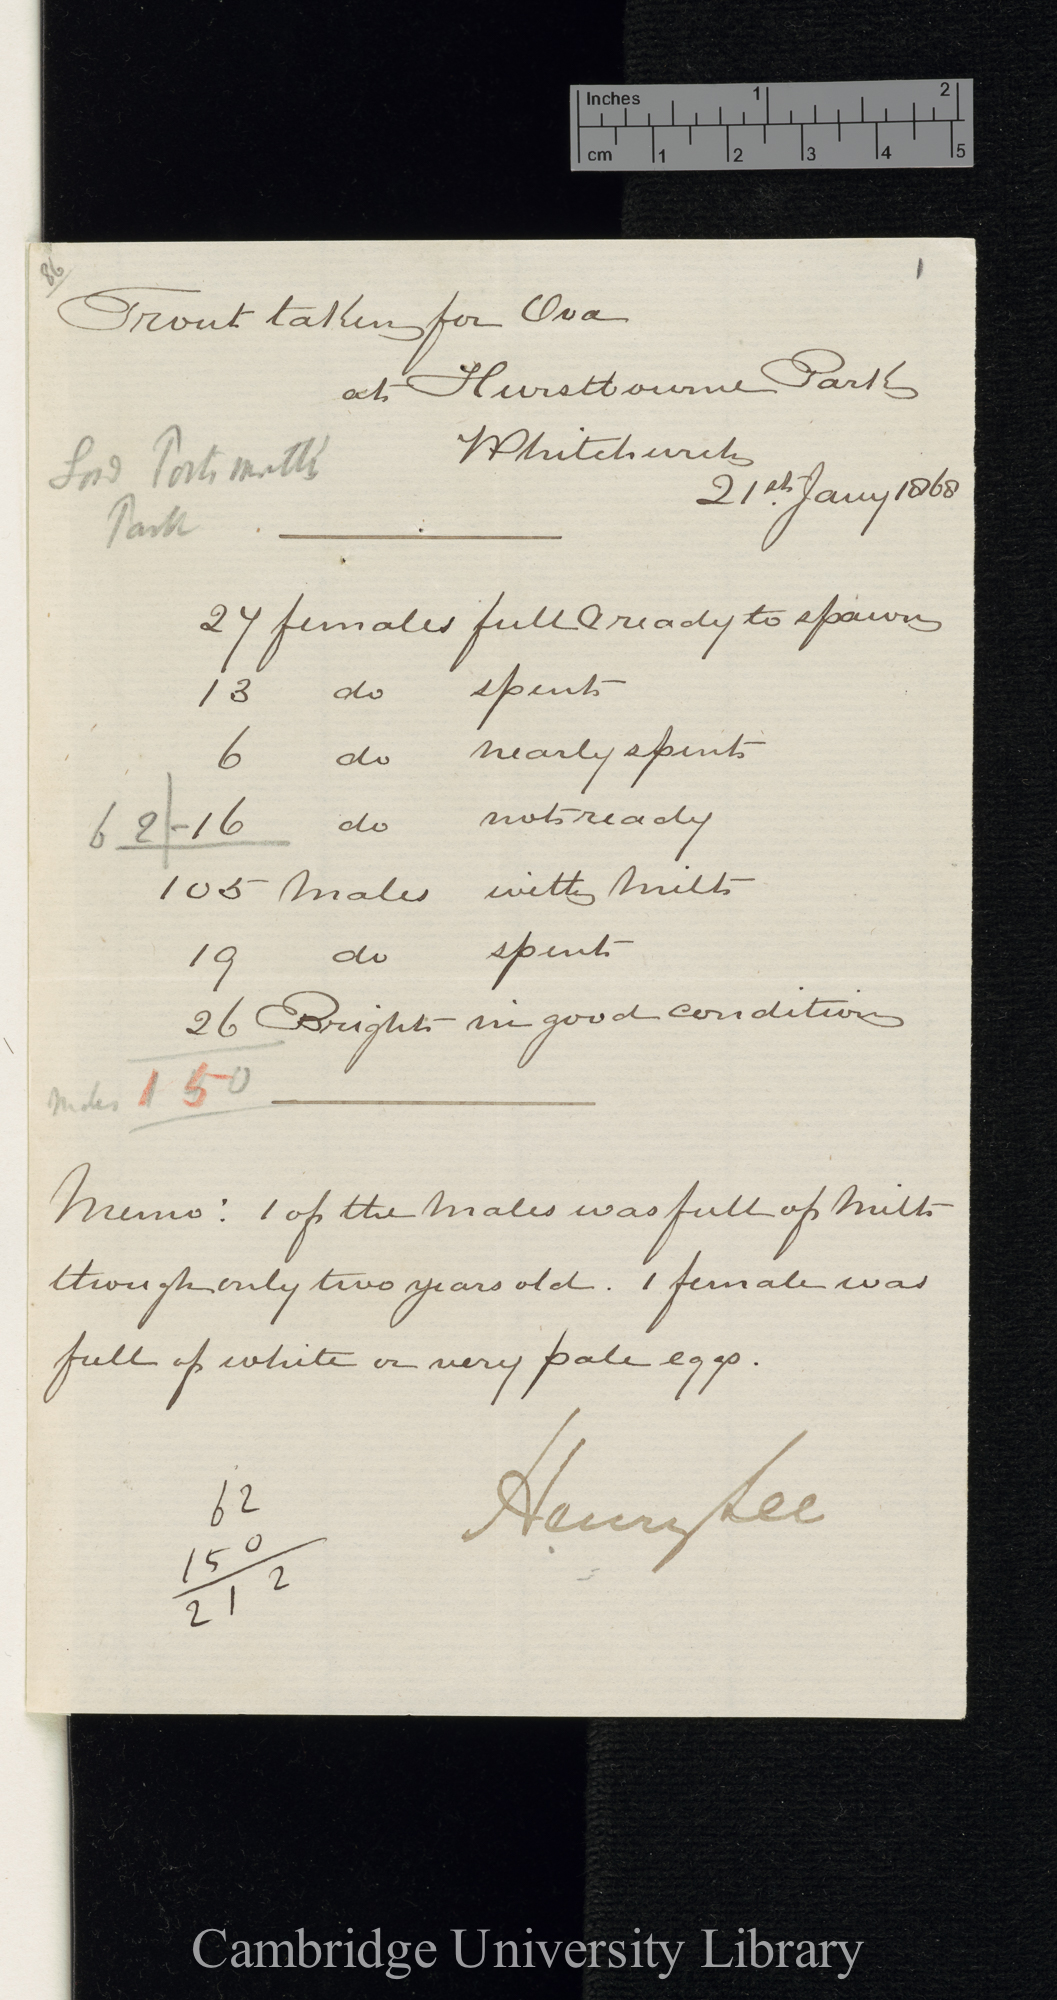 Inches 1 2
cm 1 2 3 4 5
86
1
Trout taken for Ova
at Hurstbourne Park
Whitchurch
21st. Jany 1868
Lord Portsmouth's
Park
27 females full & ready to spawn
13 do spent
6 do nearly spent
62 - 16 do not ready
105 Males with Milt
19 do spent
26 Bright in good condition
Males 150
Memo: 1 of the Males was full of Milt
though only two years old. 1 female was
full of white or very pale eggs.
Henry Lee
62
150
212
Cambridge University Library